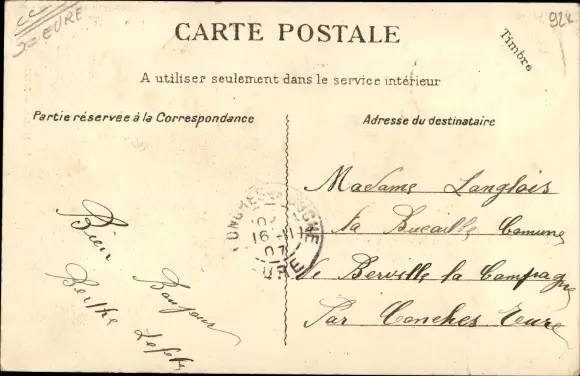 EURE
924
CARTE POSTALE
Timbre
A utiliser seulement dans le service intérieur
Partie réservée à la Correspondance
Adresse du destinataire
Bien
Bonjour
Berthe
Madame Langlois
la Bucaille Comune
Berville la Campagne
Par Conches Eure
16 -11
07
EURE